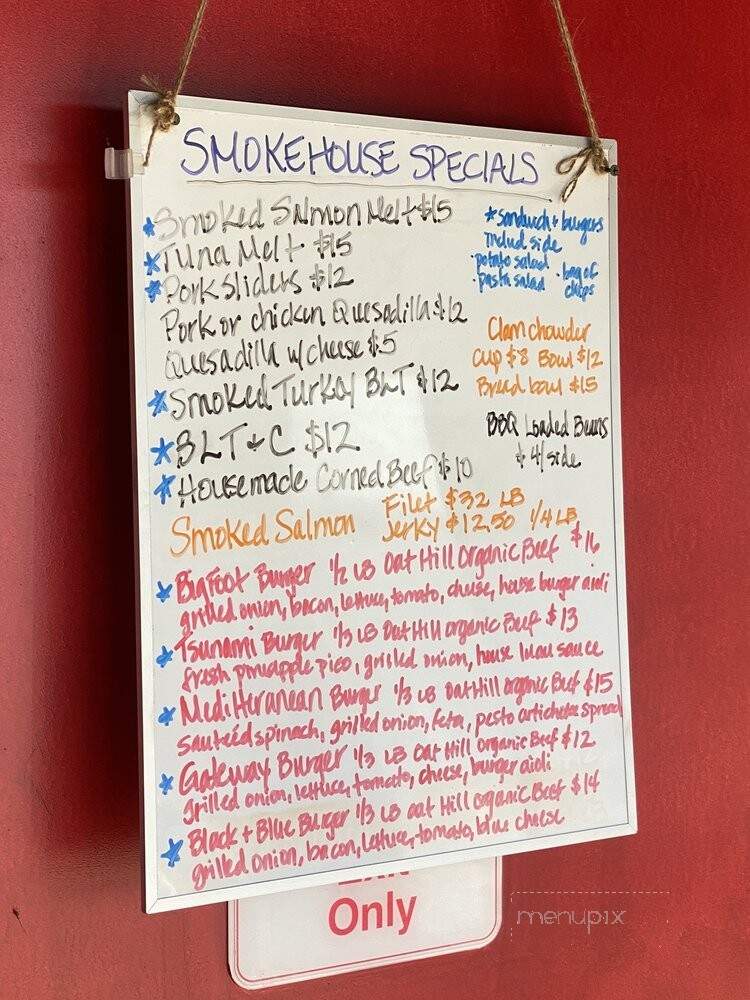 SMOKEHOUSE SPECIALS
*Smoked Salmon Melt $15
*Tuna Melt $15
*Pork Sliders $12
Pork or chicken Quesadilla $12
Quesadilla w/cheese $5
*Smoked Turkey BLT $12
*BLT+C $12
*Housemade Corned Beef $10
*sandwich + burgers
includ side
·potato salad
·pasta salad ·bag of
chips
Clam chowder
Cup $8 Bowl $12
Bread bowl $15
BBQ Loaded Beans
$4/side
Smoked Salmon Filet $32 LB
Jerky $12.50 1/4 LB
*Bigfoot Burger 1/2 LB Oat Hill Organic Beef $16
grilled onion, bacon, lettuce, tomato, cheese, house burger aioli
*Tsunami Burger 1/3 LB Oat Hill organic Beef $13
fresh pineapple pico, grilled onion, house luau sauce
*Mediteranean Burger 1/3 LB Oat Hill organic Beef $15
sauteéd spinach, grilled onion, feta, pesto artichoke spread
*Gateway Burger 1/3 LB Oat Hill Organic Beef $12
grilled onion, lettuce, tomato, cheese, burger aioli
*Black + Blue Burger 1/3 LB oat Hill organic Beef $14
grilled onion, bacon, lettuce, tomato, blue cheese
Only
menupix